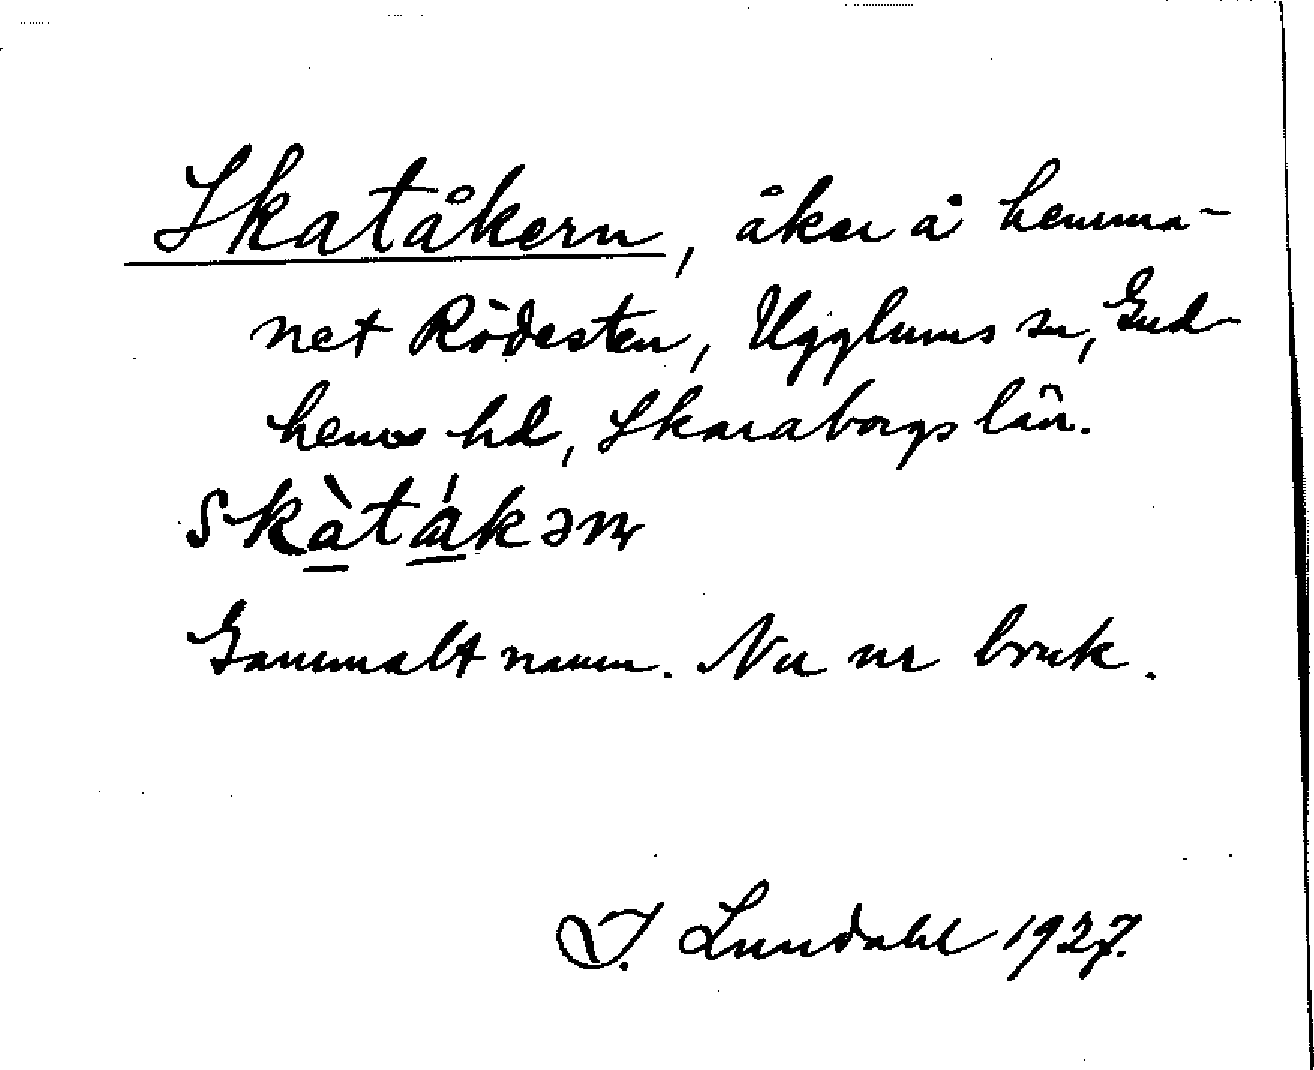 Skatåkern, åker å hemma-
net Rödesten, Ugglums sn, Gud-
hems hd, Skaraborgs län.
skàtákəɲ
Gammalt namn. Nu ur bruk.
I. Lundahl 1927.